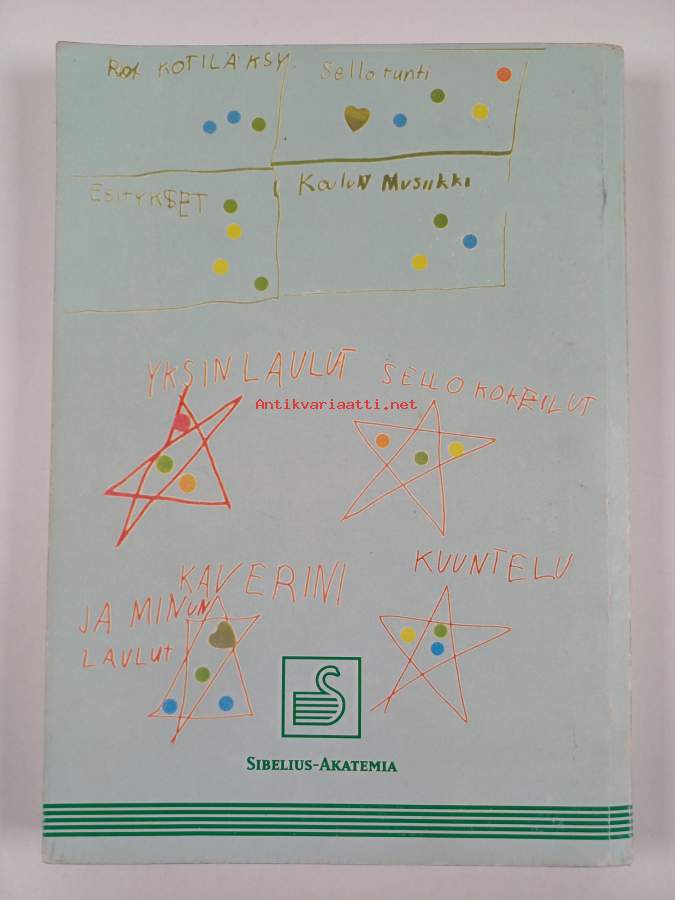 KOTILÄKSY
Sello tunti
ESITYKSET
Koulun Musiikki
YKSIN LAULUT
SELLO KOKEILUT
Antikvariaatti.net
KAVERINI
JA MINUN
LAULUT
KUUNTELU
SIBELIUS-AKATEMIA